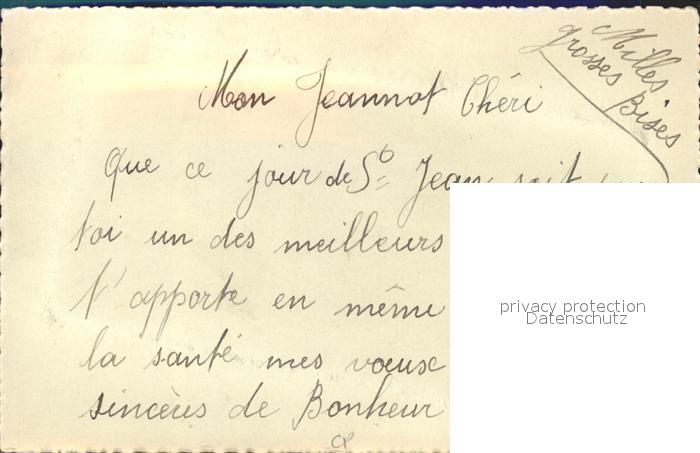 Milles
grosses Bises
Mon Jeannot Chéri
Que ce jour de St Jean soit
toi un des meilleurs
t'apporte en même
la santé mes vœux
sincères de Bonheur
CP
privacy protection
Datenschutz